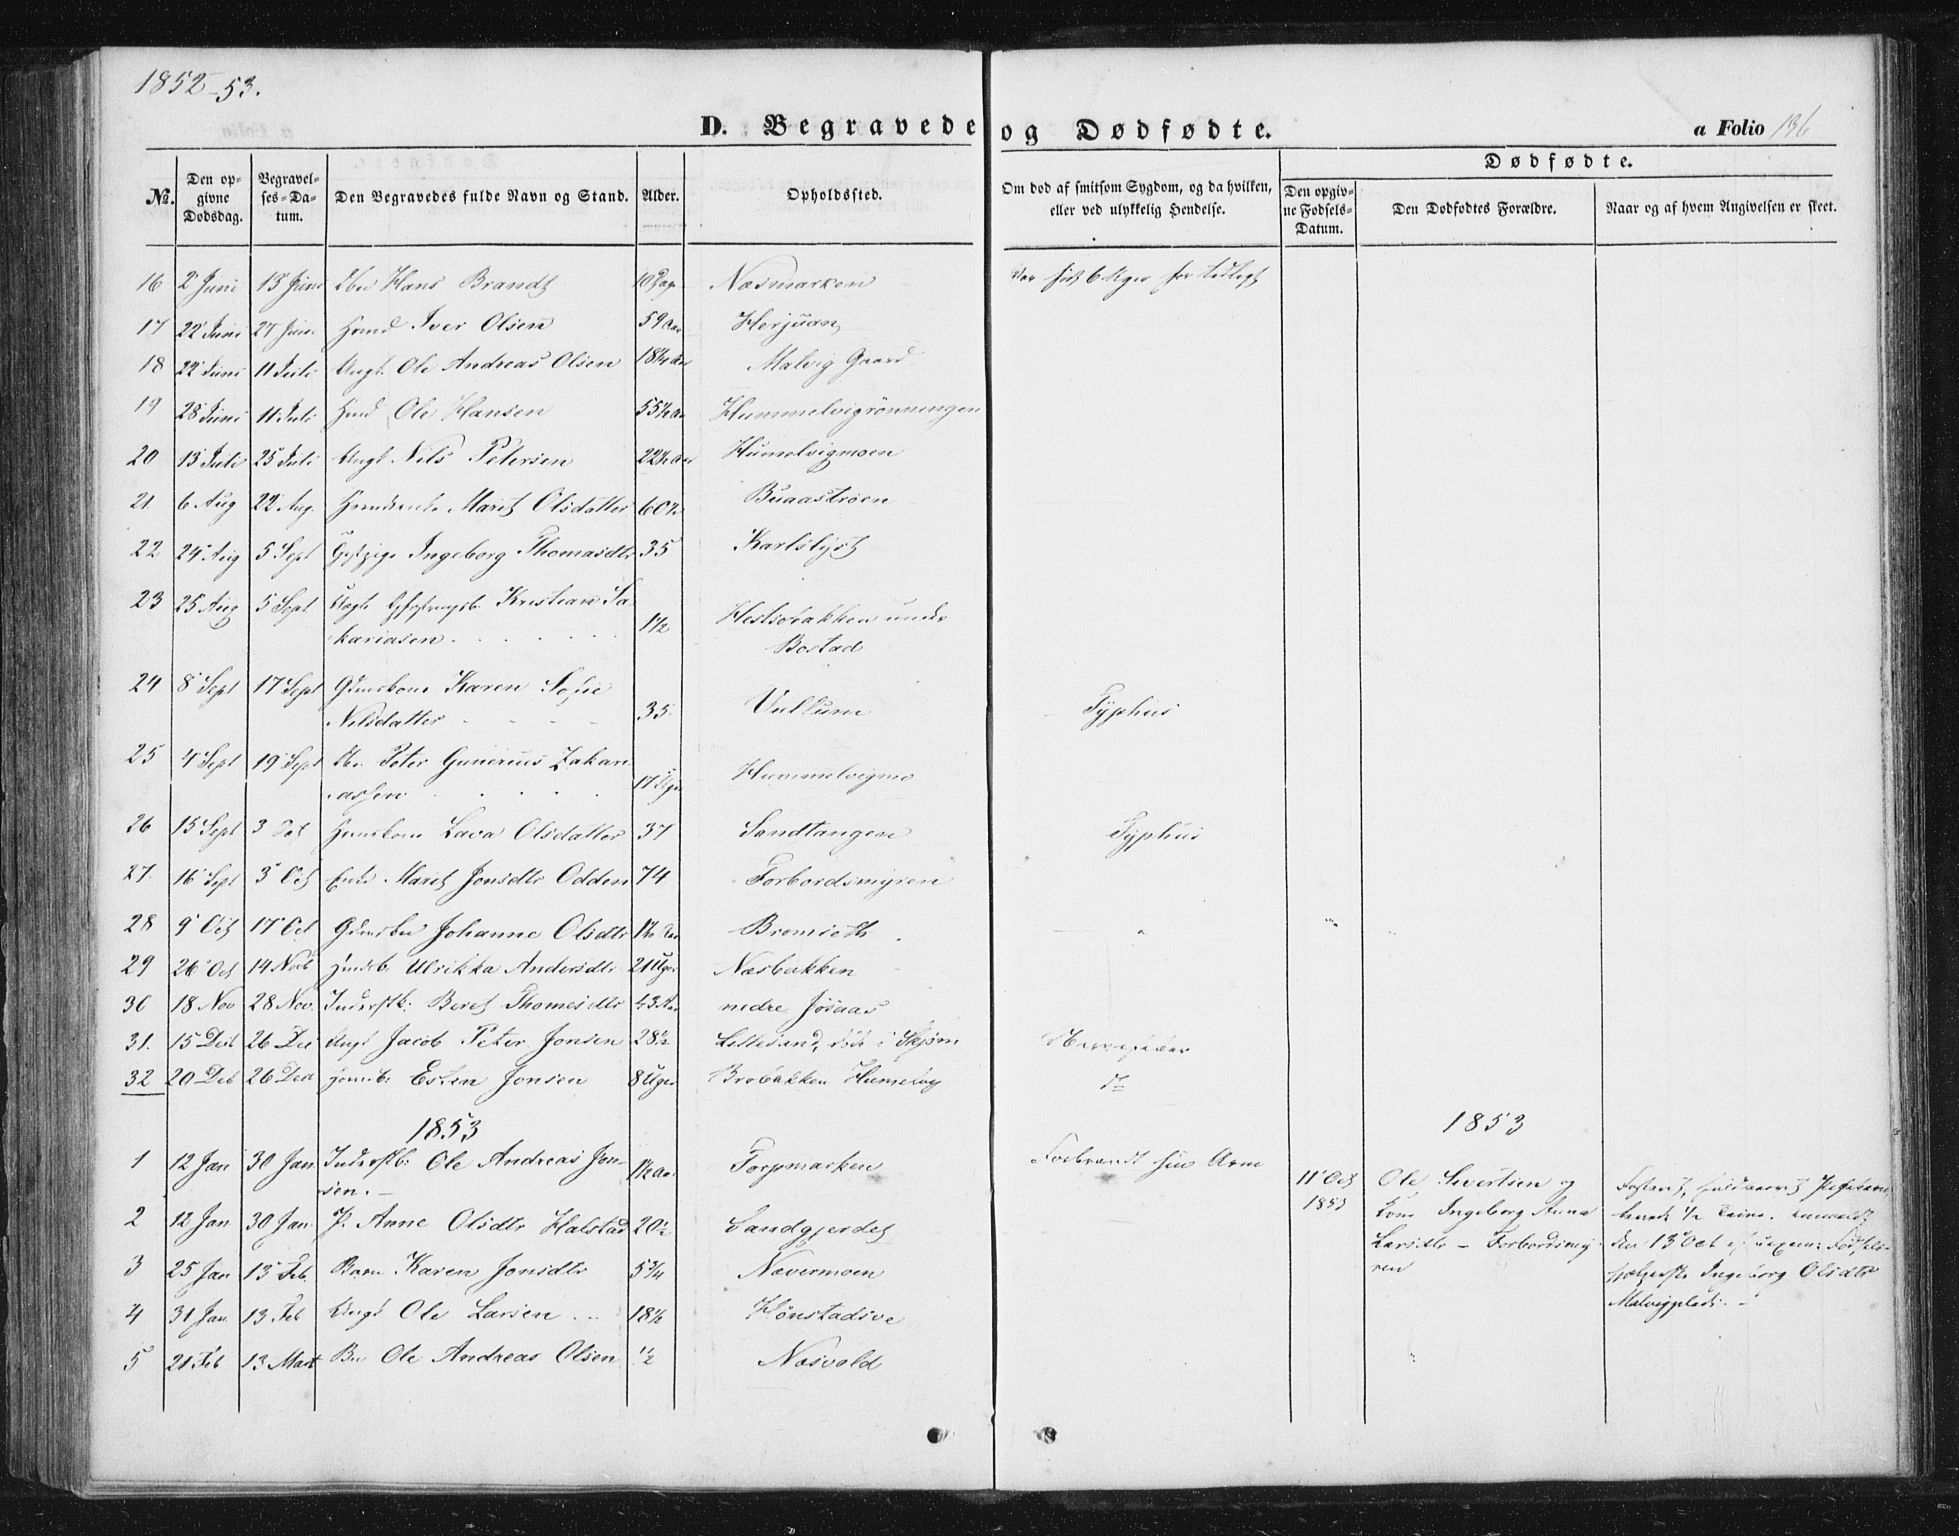 1852-53.
D. Begravede og Dødfødte.
a Folio 136
No.
Den opgivne Dødsdag.
Begravelses-Datum.
Den Begravedes fulde Navn og Stand.
Alder.
Opholdssted.
Om død af smitsom Sygdom, og da hvilken, eller ved ulykkelig Hendelse.
Dødfødte.
Den opgivne Fødsels-Datum.
Den Dødfødtes Forældre.
Naar og af hvem Angivelsen er skeet.
16 2 Juni 13 Juni Hans Brandt Næsmarken
17 22 Juni 27 Juni Iver Olsen 59 Aar Herjuan
18 22 Juni 11 Juli Ungk. Ole Andreas Olsen 18¼ Aar Malvig Gaard
19 28 Juni 11 Juli Ole Hansen 55½ Aar Hummelvigrönningen
20 13 Juli 25 Juli Ungk Nils Petersen 22½ Aar Humelvigmoen
21 6 Aug 22 Aug. Marit Olsdatter 60½ Buaastrøen
22 24 Aug 5 Sept Ingeborg Thomasdtr 35 Karlslyst
23 25 Aug 5 Sept Kristian Sa-
kariasen 1½ Hestsøbakken under
Bostad
24 8 Sept 17 Sept Karen Sofie
Nilsdatter 35 Vullum Typhus
25 4 Sept 19 Sept Peter Gunerius Zakari-
assen 17 Uger Hummelvigmo
26 15 Sept 3 Oct Lava Olsdatter 37 Sandtangen Typhus
27. 16 Sept 3 Oct Enke Marit Jonsdtr Odden 74 Forbordsmyren
28 9 Oct 17 Oct Johanne Olsdtr Bremseth
29 26 Oct 14 Novb Ulrikka Andersdtr 21 Uger Næsbakken
30 18 Nov 28 Nov. Inderstb: Beret Thomesdtr 43 Aar nedre Jøsaas
31. 15 Decb 26 Dec Ungk Jacob Peter Jonsen 28½ Lillesand, død i Skjørn Nervefeber
32 20 Deb 26 Dec Esten Jonsen 8 Uger Brobakken Humelvig do
1853
1853
1 12 Jan 30 Jan Inderstb: Ole Andreas Jon-
sen. 1½ Aar Torpmarken Forbrændt sin Arm
2 12 Jan 30 Jan. P. Anne Olsdtr Halstad 20½ Sandgjerdet
3 25 Jan 13 Feb. Barn Karen Jonsdtr 5¾ Nævermoen
4 31 Jan 13 Feb Ungk Ole Larsen 18½ Hønstadsve
5 21 Feb 13 Mart Ole Andreas Olsen ½ Næsvold
11 Oct
1853
Ole Sivertsen og
Kone Ingeborg Anna
Larsdtr - Forbordsmy-
ren
den 13 Oct af
Ingeborg Olsdtr
Malvigplads.